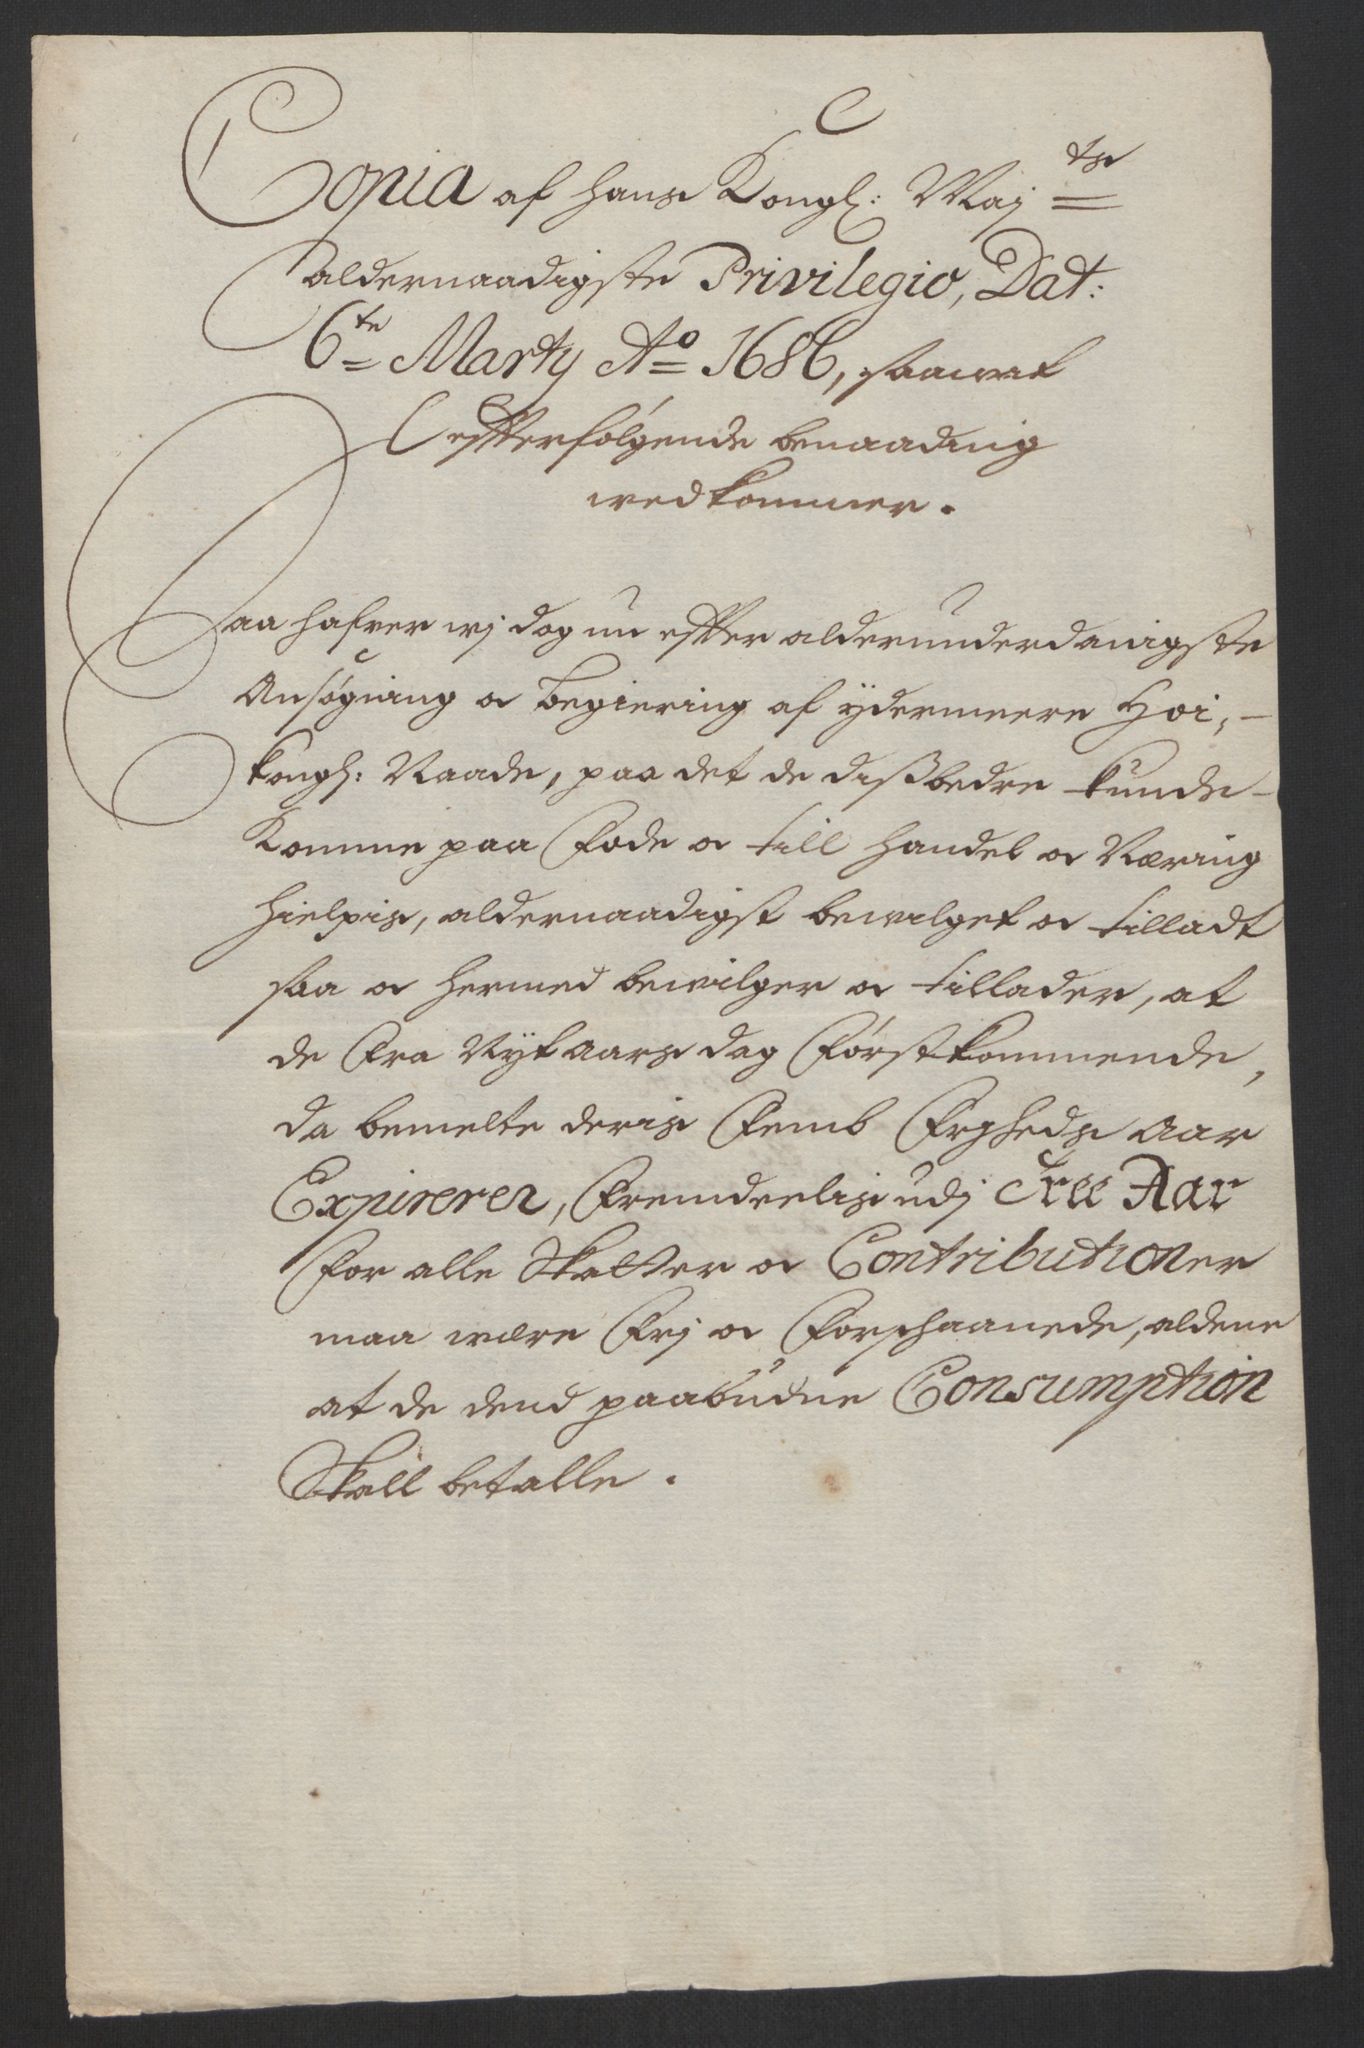 Copia af hans Kongl: Maj ts
aldernaadigste Privilegio, Dat:
6te Marty Ao 1686, saavit
efterfølgende benaading
vedkommer.
Saa hafver vj dog nu efter alderunderdanigste
Ansøgning oc begiering af ÿdermeere Høi,-
kongl: Naade, paa det de dissbedre kunde-
komme paa Fode oc till Handel oc Næring
hielpis, aldernaadigst bevilget oc tilladt
saa oc hermed bevilger oc tillader, at
de Fra Nÿtaars dag Førstkommende,
da bemelte deris Femb Frjheds Aar
Expirerer, Fremdeelis udj Tree Aar
For alle Skatter oc Contributioner
maa være Frj oc Forschaanede, aldene
at de dend paabudne Consumption
Skall betalle.